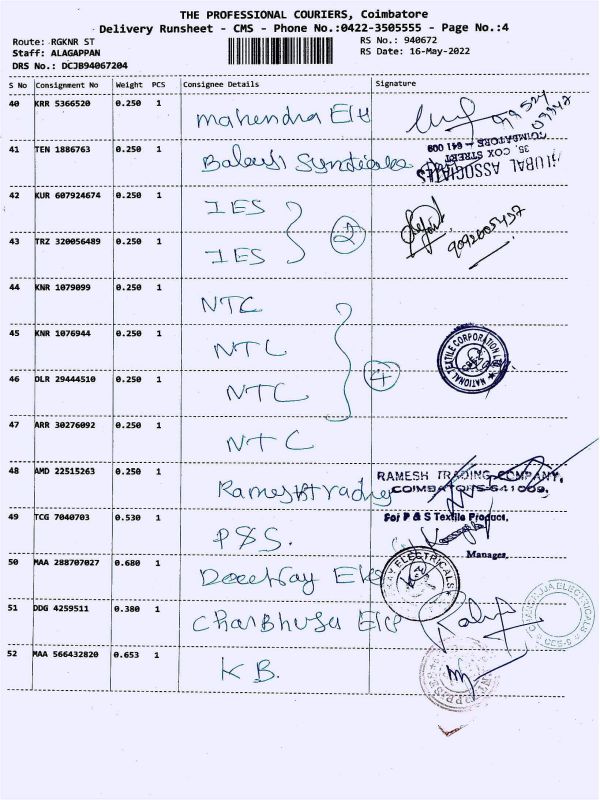 THE PROFESSIONAL COURIERS, Coimbatore
Delivery Runsheet - CMS - Phone No.:0422-3505555 - Page No.:4
Route: RGKNR ST
Staff: ALAGAPPAN
DRS No.: DCJB94067204
RS No.: 940672
RS Date: 16-May-2022
S No Consignment No Weight PCS Consignee Details Signature
40 KRR 5366520 0.250 1 Mahendra Ele
41 TEN 1886763 0.250 1 Balaji Syndicate
GLOBAL ASSOCIATES
35, COX STREET
COIMBATORE - 641 009
42 KUR 607924674 0.250 1 IES
43 TRZ 320056489 0.250 1 IES
2
9092605457
44 KNR 1079099 0.250 1 NTC
45 KNR 1076944 0.250 1 NTC
46 DLR 29444510 0.250 1 NTC
47 ARR 30276092 0.250 1 NTC
4
NATIONAL TEXTILE CORPORATION LTD
48 AMD 22515263 0.250 1 Ramesh trading
RAMESH TRADING COMPANY,
COIMBATORE-641009.
49 TCG 7040703 0.530 1 P&S.
For P & S Textile Product,
Manager.
50 MAA 288707027 0.680 1 Deeekay Ele
KAY ELECTRICALS
51 DDG 4259511 0.380 1 Charbhuja Ele
ELECTRICALS
52 MAA 566432820 0.653 1 KB.